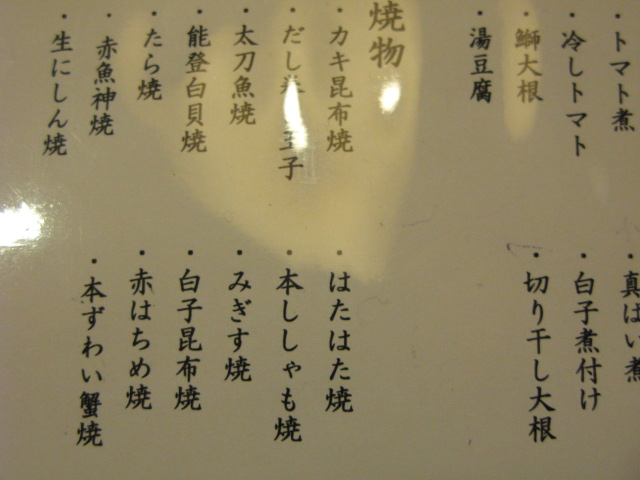 ・トマト煮
・真ばい煮
・冷しトマト
・白子煮付け
・鰤大根
・切り干し大根
・湯豆腐
焼物
・カキ昆布焼
・はたはた焼
・だし巻き玉子
・本ししゃも焼
・太刀魚焼
・みぎす焼
・能登白貝焼
・白子昆布焼
・たら焼
・赤はちめ焼
・赤魚神焼
・本ずわい蟹焼
・生にしん焼